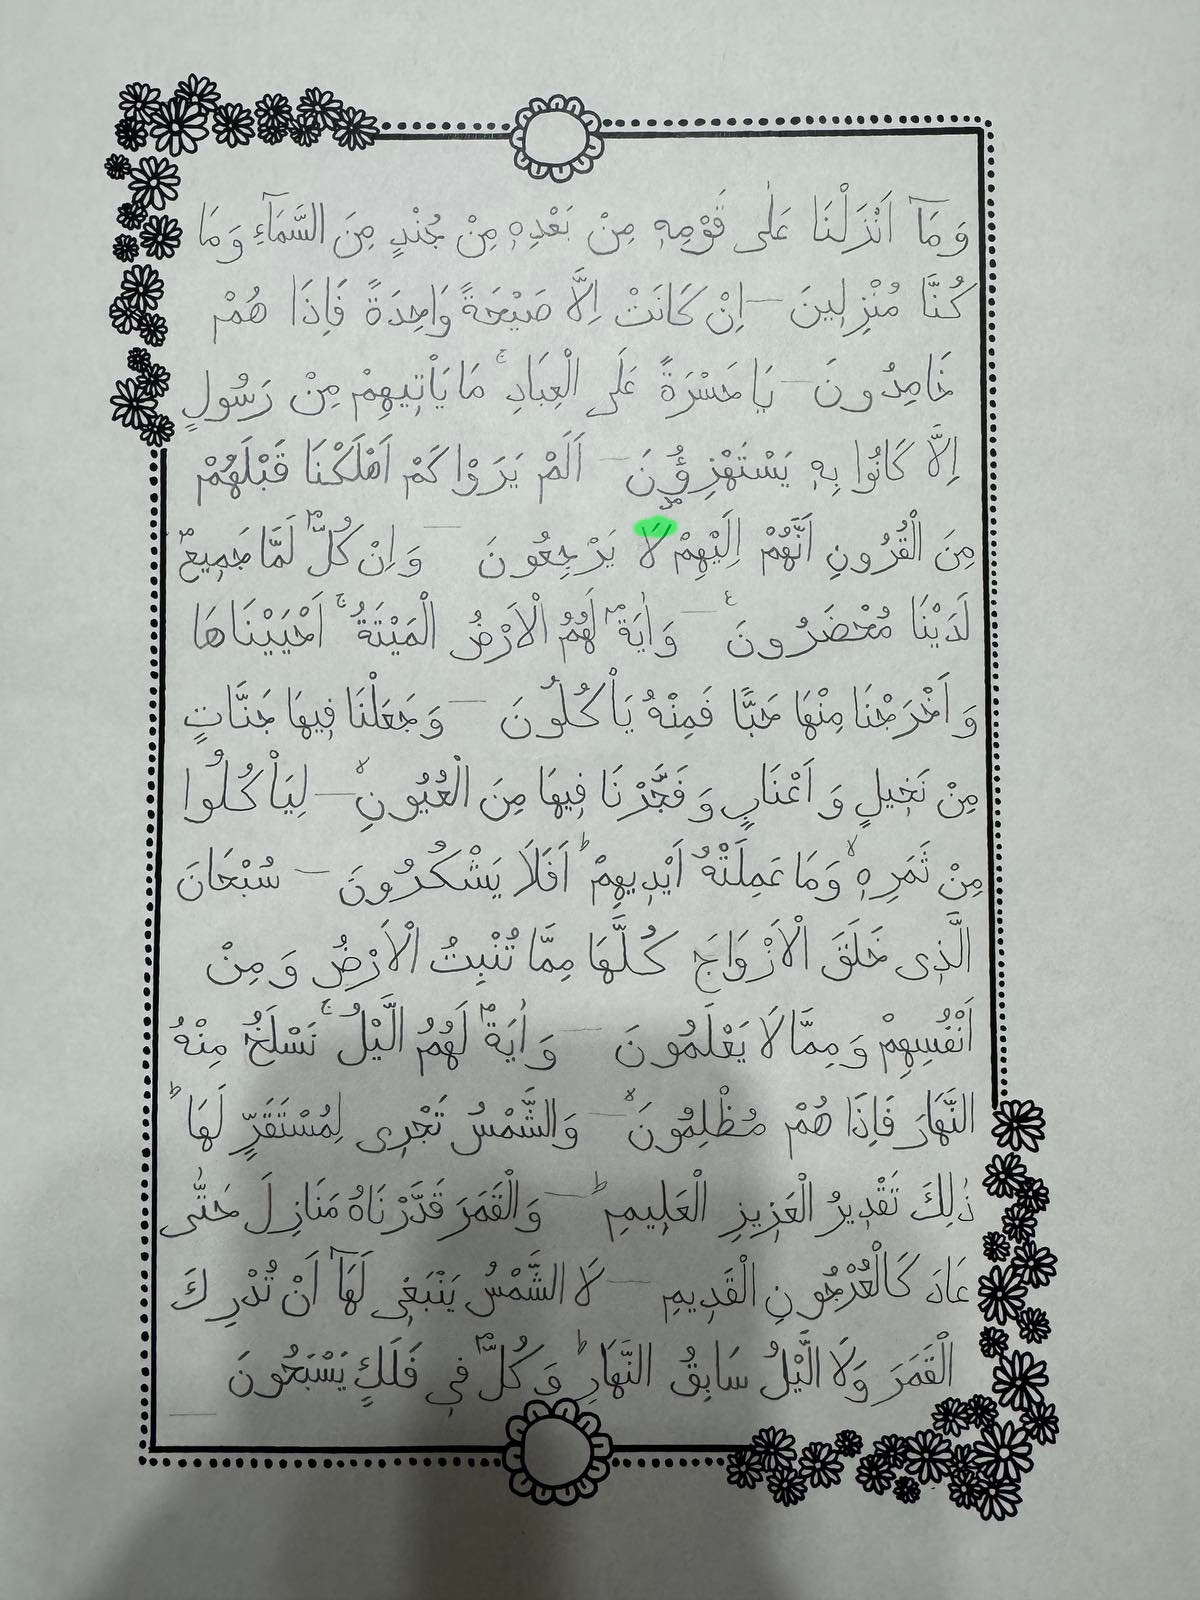 وَمَٓا اَنْزَلْنَا عَلٰى قَوْمِهٖ مِنْ بَعْدِهٖ مِنْ جُنْدٍ مِنَ السَّمَٓاءِ وَمَا
كُنَّا مُنْزِلٖينَ — اِنْ كَانَتْ اِلَّا صَيْحَةً وَاحِدَةً فَاِذَا هُمْ
خَامِدُونَ — يَا حَسْرَةً عَلَى الْعِبَادِۚ مَا يَاْتٖيهِمْ مِنْ رَسُولٍ
اِلَّا كَانُوا بِهٖ يَسْتَهْزِؤُ۫نَ — اَلَمْ يَرَوْا كَمْ اَهْلَكْنَا قَبْلَهُمْ
مِنَ الْقُرُونِ اَنَّهُمْ اِلَيْهِمْ لَا يَرْجِعُونَ — وَاِنْ كُلٌّ لَمَّا جَمٖيعٌ
لَدَيْنَا مُحْضَرُونَ ࣖ — وَاٰيَةٌ لَهُمُ الْاَرْضُ الْمَيْتَةُۚ اَحْيَيْنَاهَا
وَاَخْرَجْنَا مِنْهَا حَبًّا فَمِنْهُ يَاْكُلُونَ — وَجَعَلْنَا فٖيهَا جَنَّاتٍ
مِنْ نَخٖيلٍ وَاَعْنَابٍ وَفَجَّرْنَا فٖيهَا مِنَ الْعُيُونِۙ — لِيَاْكُلُوا
مِنْ ثَمَرِهٖۙ وَمَا عَمِلَتْهُ اَيْدٖيهِمْؕ اَفَلَا يَشْكُرُونَ — سُبْحَانَ
الَّذٖى خَلَقَ الْاَزْوَاجَ كُلَّهَا مِمَّا تُنْبِتُ الْاَرْضُ وَمِنْ
اَنْفُسِهِمْ وَمِمَّا لَا يَعْلَمُونَ — وَاٰيَةٌ لَهُمُ الَّيْلُۚ نَسْلَخُ مِنْهُ
النَّهَارَ فَاِذَا هُمْ مُظْلِمُونَۙ — وَالشَّمْسُ تَجْرٖى لِمُسْتَقَرٍّ لَهَاؕ
ذٰلِكَ تَقْدٖيرُ الْعَزٖيزِ الْعَلٖيمِؕ — وَالْقَمَرَ قَدَّرْنَاهُ مَنَازِلَ حَتّٰى
عَادَ كَالْعُرْجُونِ الْقَدٖيمِ — لَا الشَّمْسُ يَنْبَغٖى لَهَٓا اَنْ تُدْرِكَ
الْقَمَرَ وَلَا الَّيْلُ سَابِقُ النَّهَارِؕ وَكُلٌّ فٖى فَلَكٍ يَسْبَحُونَ —